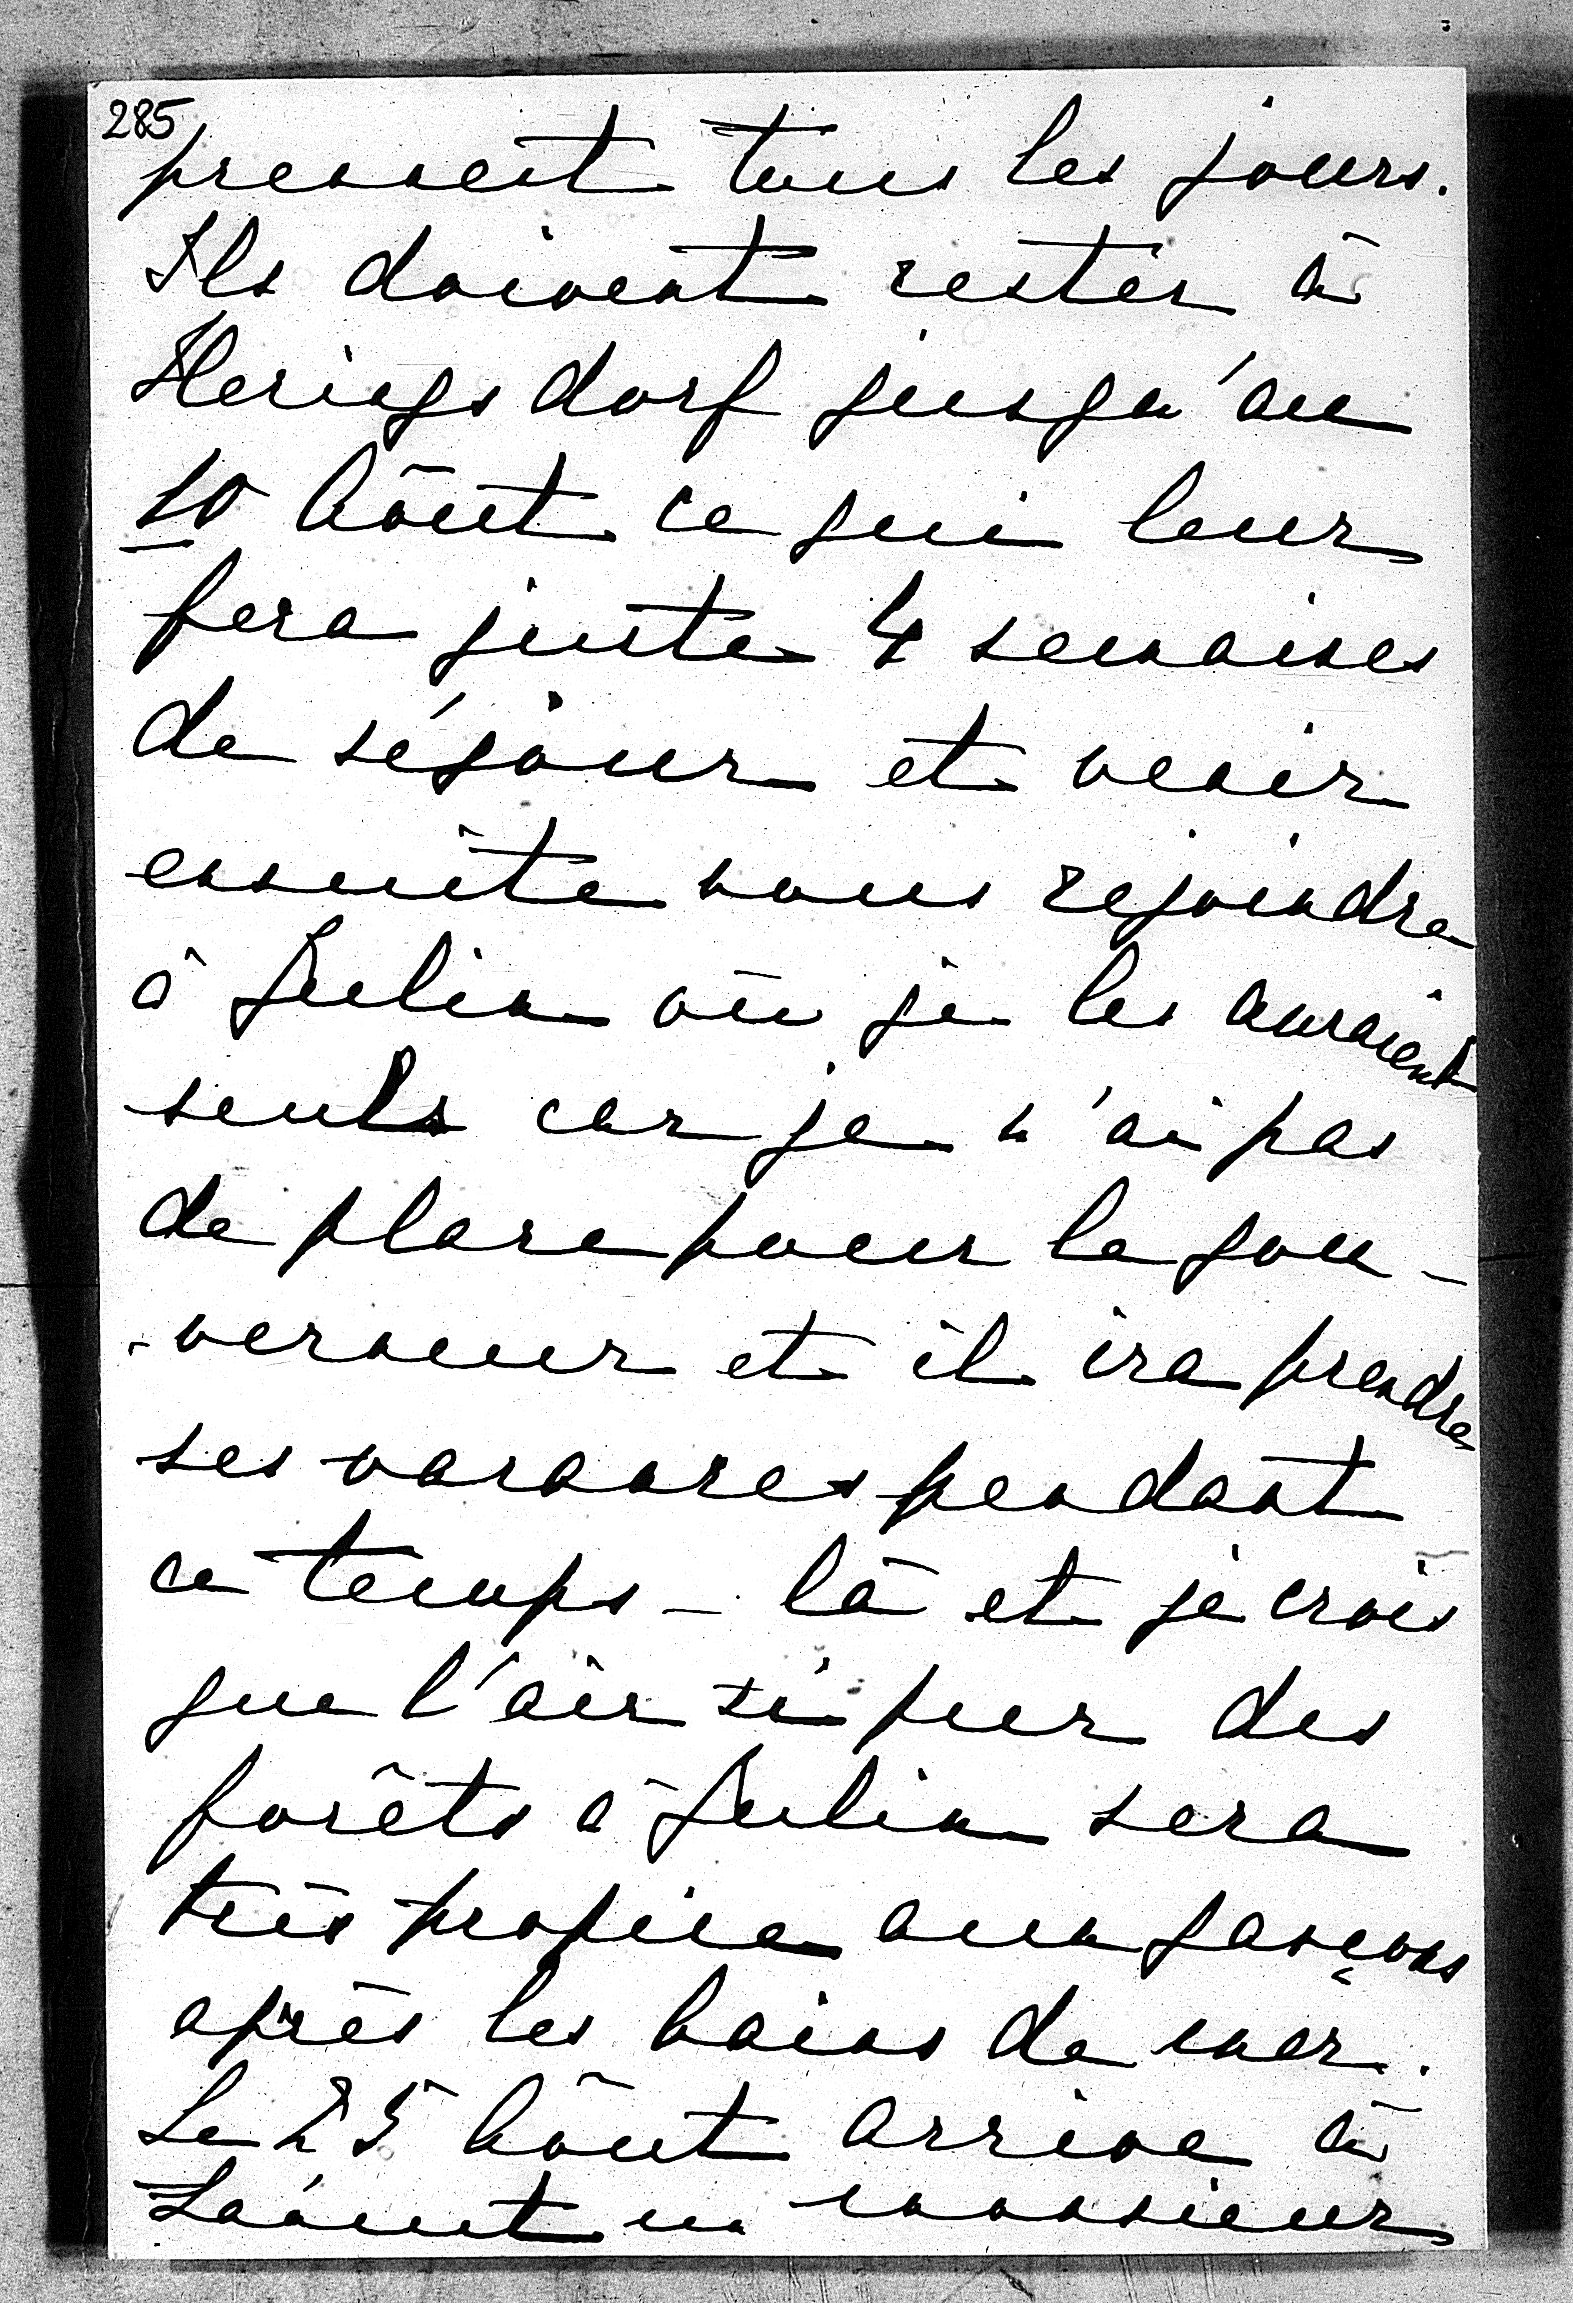 285
prennent tous les jours.
Ils doivent rester à
Heringsdorf jusqu'au
10 Août ce qui leur
fera juste 4 semaines
de séjour et venir
ensuite nous rejoindre
à Julin où je les auraient
seuls car je n'ai pas
de place pour le gou-
-verneur et il ira prendre
ses vacances pendant
ce temps-là et je crois
que l'air si pur des
forêts à Julin sera
très propice aux garçons
après les bains de mer.
Le 25 Août arrive à
un monsieur